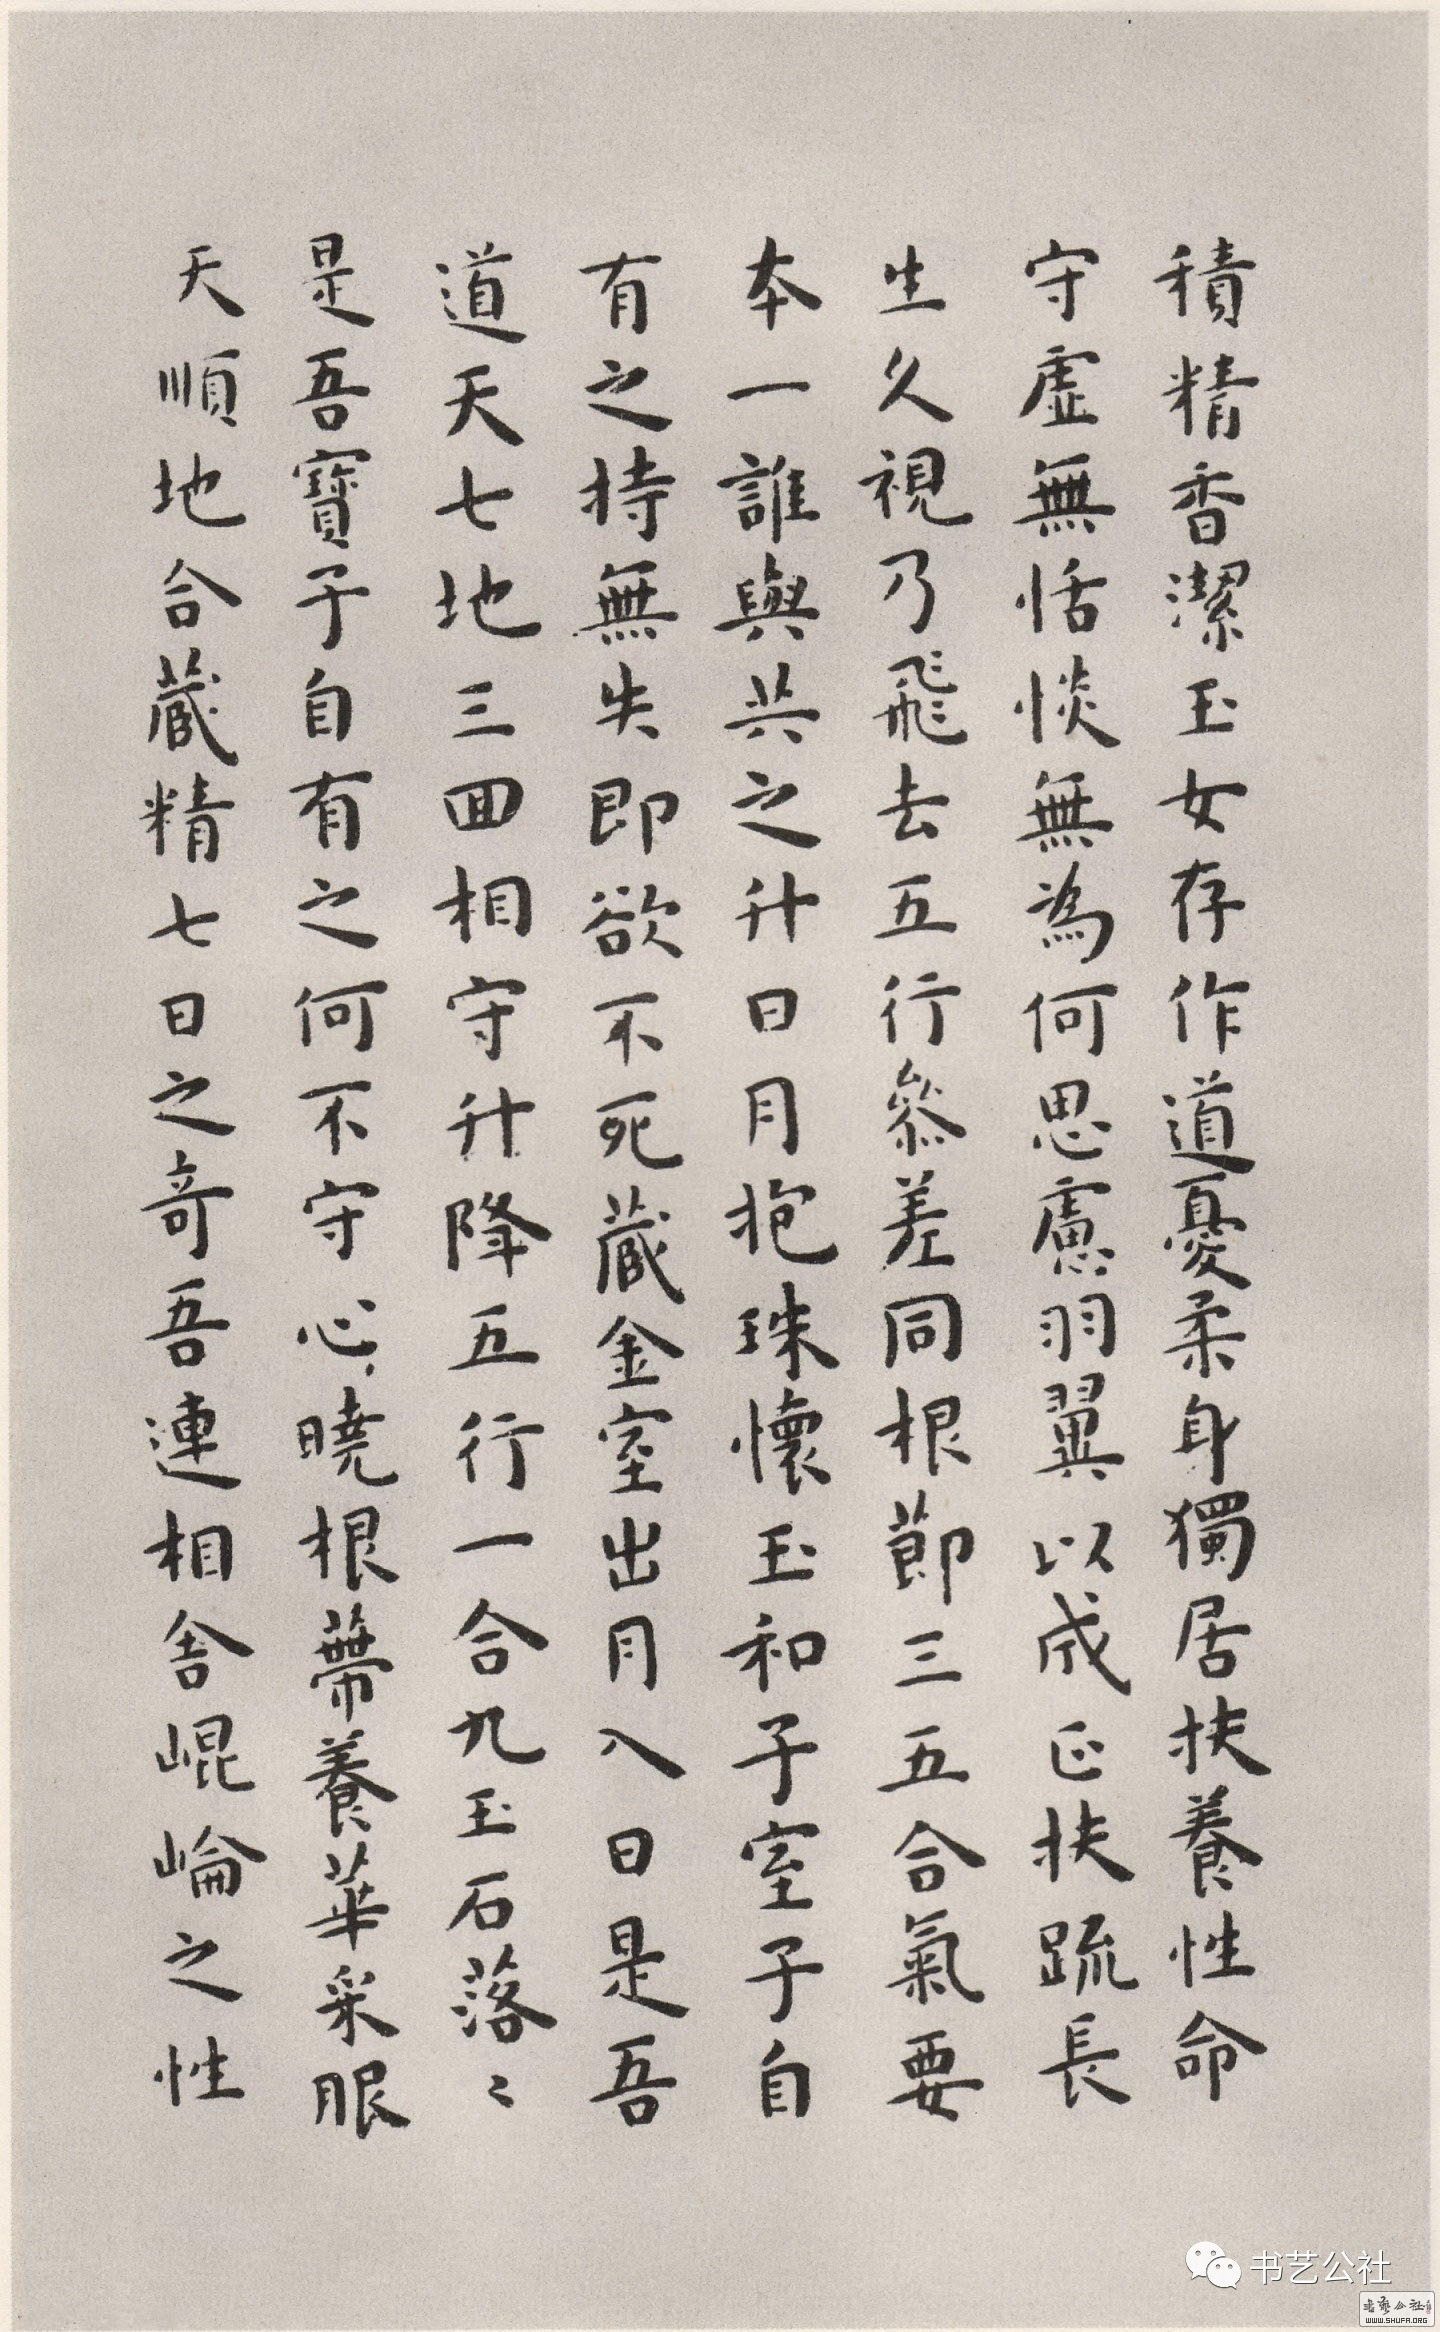 積精香潔玉女存作道憂柔身獨居扶養性命
守虛無恬惔無為何思慮羽翼以成正扶疏長
生久視乃飛去五行參差同根節三五合氣要
本一誰與共之升日月抱珠懷玉和子室子自
有之持無失即欲不死藏金室出月入日是吾
道天七地三回相守升降五行一合九玉石落〻
是吾寶子自有之何不守心曉根蔕養華采眼
天順地合藏精七日之奇吾連相舍崐崘之性
书艺公社
书艺公社
WWW.SHUFA.ORG